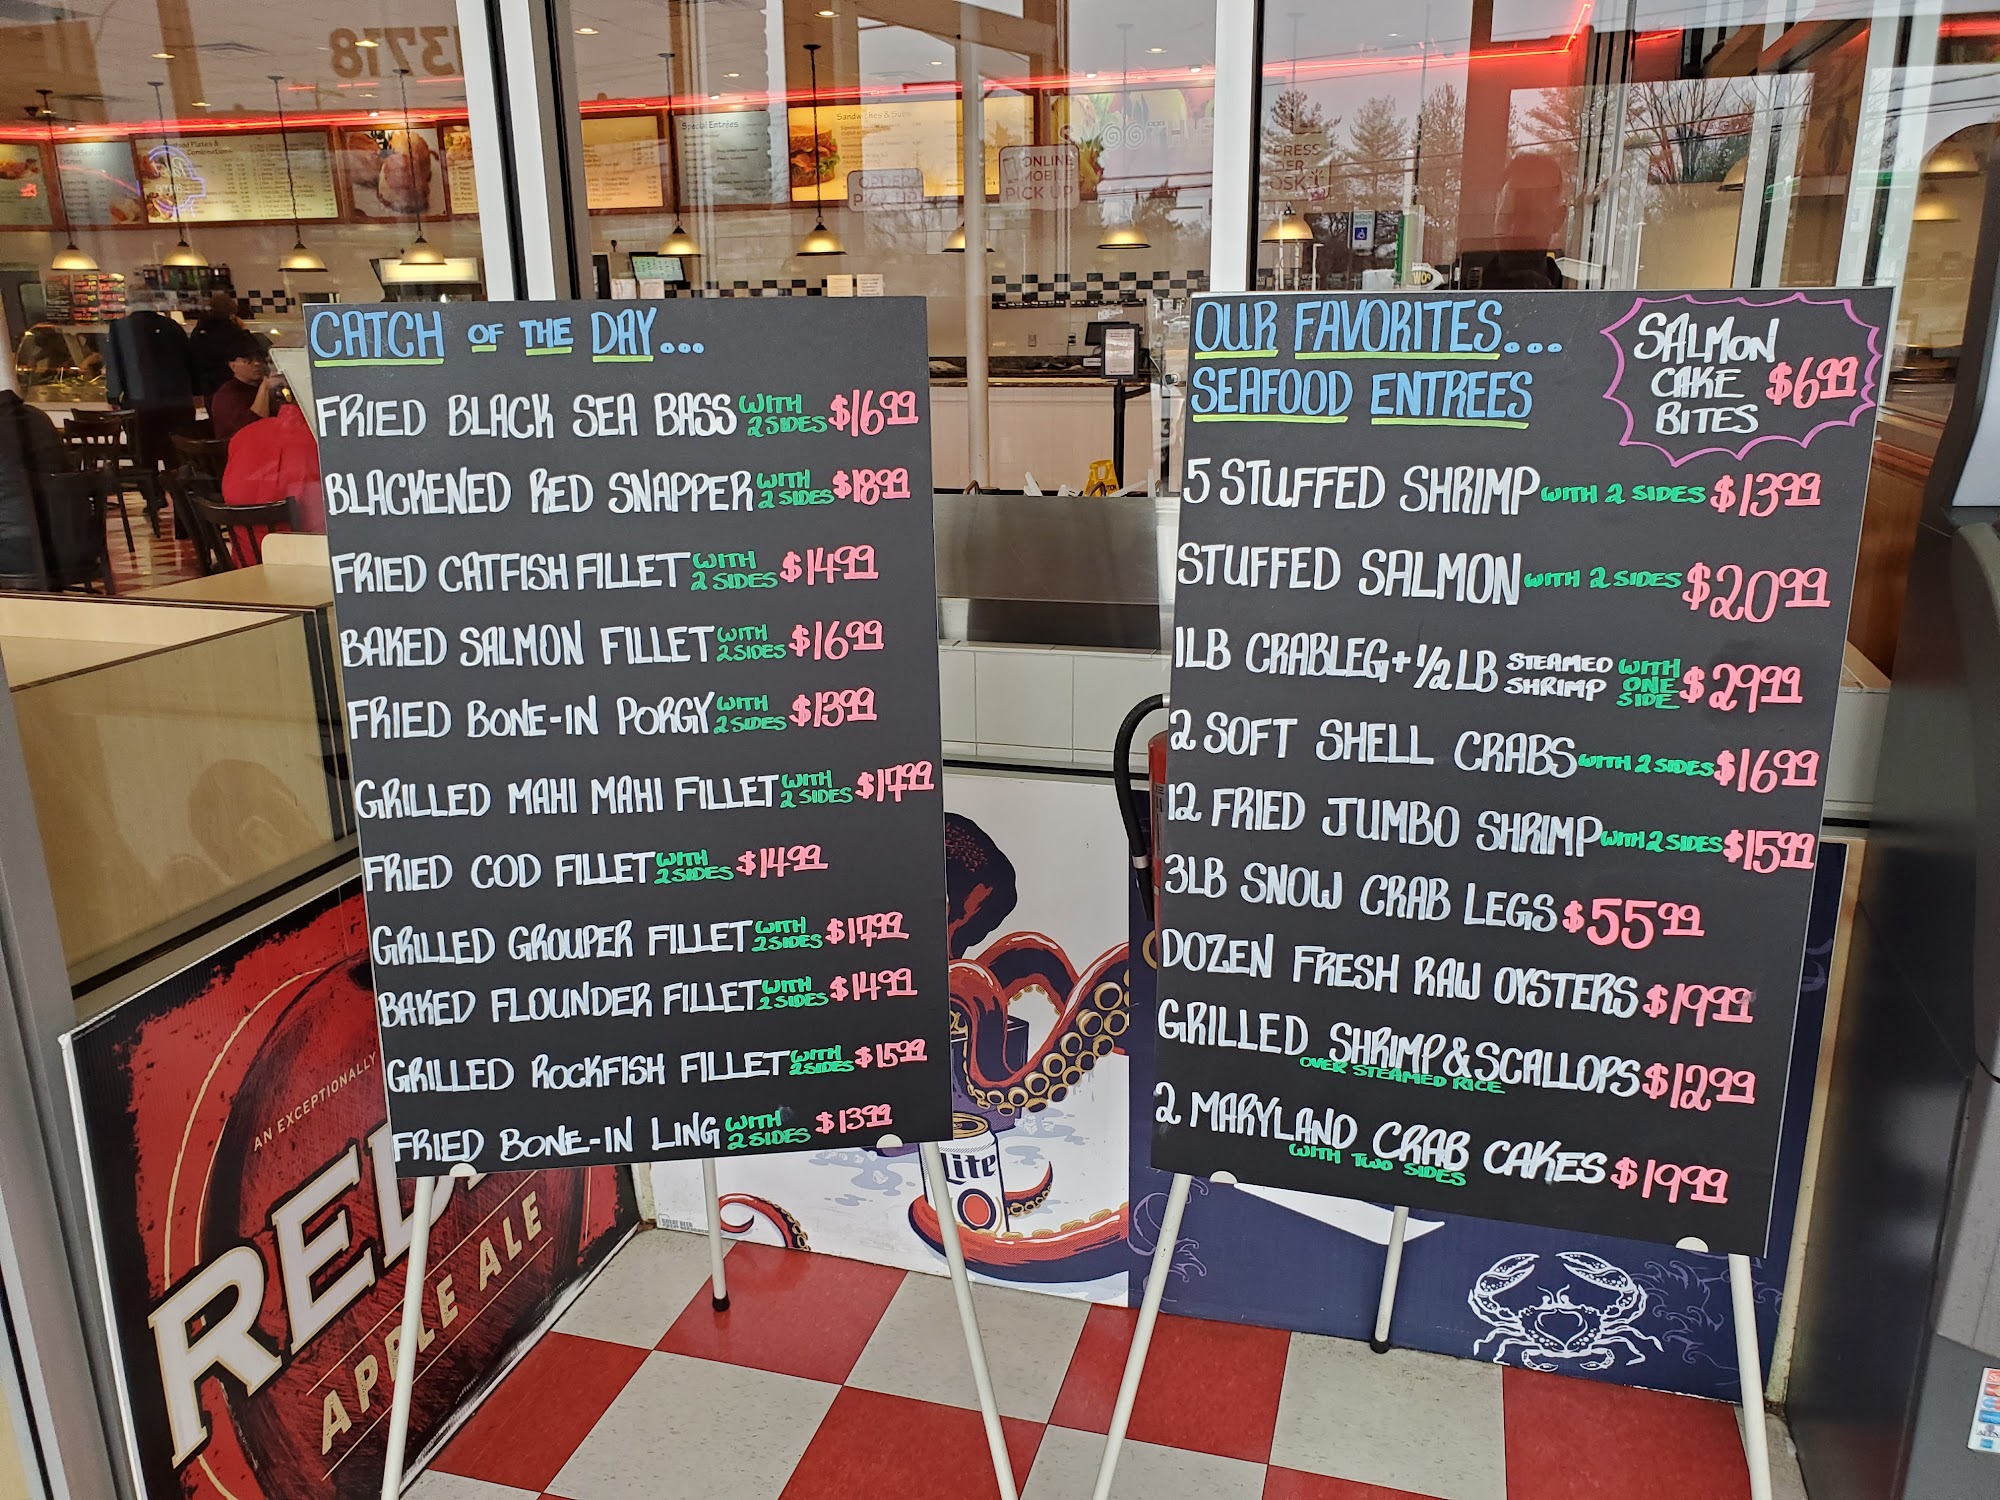 13718
Special Entrées
Sandwiches & Subs
ONLINE
MOBILE
PICK UP
ORDER
PICK UP
CATCH OF THE DAY...
FRIED BLACK SEA BASS WITH 2 SIDES $16.99
BLACKENED RED SNAPPER WITH 2 SIDES $18.99
FRIED CATFISH FILLET WITH 2 SIDES $14.99
BAKED SALMON FILLET WITH 2 SIDES $16.99
FRIED BONE-IN PORGY WITH 2 SIDES $13.99
GRILLED MAHI MAHI FILLET WITH 2 SIDES $17.99
FRIED COD FILLET WITH 2 SIDES $14.99
GRILLED GROUPER FILLET WITH 2 SIDES $17.99
BAKED FLOUNDER FILLET WITH 2 SIDES $14.99
GRILLED ROCKFISH FILLET WITH 2 SIDES $15.99
FRIED BONE-IN LING WITH 2 SIDES $13.99
OUR FAVORITES...
SEAFOOD ENTREES
SALMON
CAKE
BITES $6.99
5 STUFFED SHRIMP WITH 2 SIDES $13.99
STUFFED SALMON WITH 2 SIDES $20.99
1LB CRABLEG + 1/2 LB STEAMED SHRIMP WITH ONE SIDE $29.99
2 SOFT SHELL CRABS WITH 2 SIDES $16.99
12 FRIED JUMBO SHRIMP WITH 2 SIDES $15.99
3LB SNOW CRAB LEGS $55.99
DOZEN FRESH RAW OYSTERS $19.99
GRILLED SHRIMP & SCALLOPS $12.99
OVER STEAMED RICE
2 MARYLAND CRAB CAKES $19.99
WITH TWO SIDES
AN EXCEPTIONALLY
RED
APPLE ALE
Lite